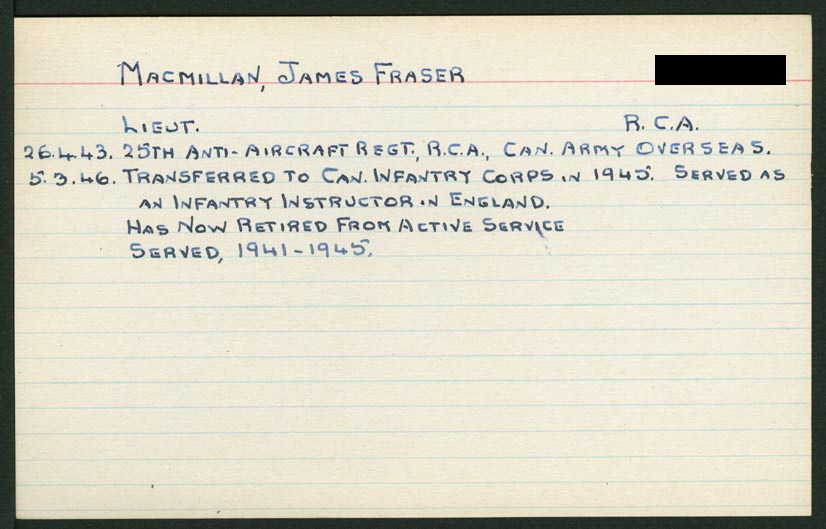 MACMILLAN, JAMES FRASER
LIEUT. R.C.A.
26.4.43. 25TH ANTI-AIRCRAFT REGT., R.C.A., CAN. ARMY OVERSEAS.
5.3.46. TRANSFERRED TO CAN. INFANTRY CORPS IN 1945. SERVED AS
AN INFANTRY INSTRUCTOR IN ENGLAND.
HAS NOW RETIRED FROM ACTIVE SERVICE
SERVED, 1941-1945.